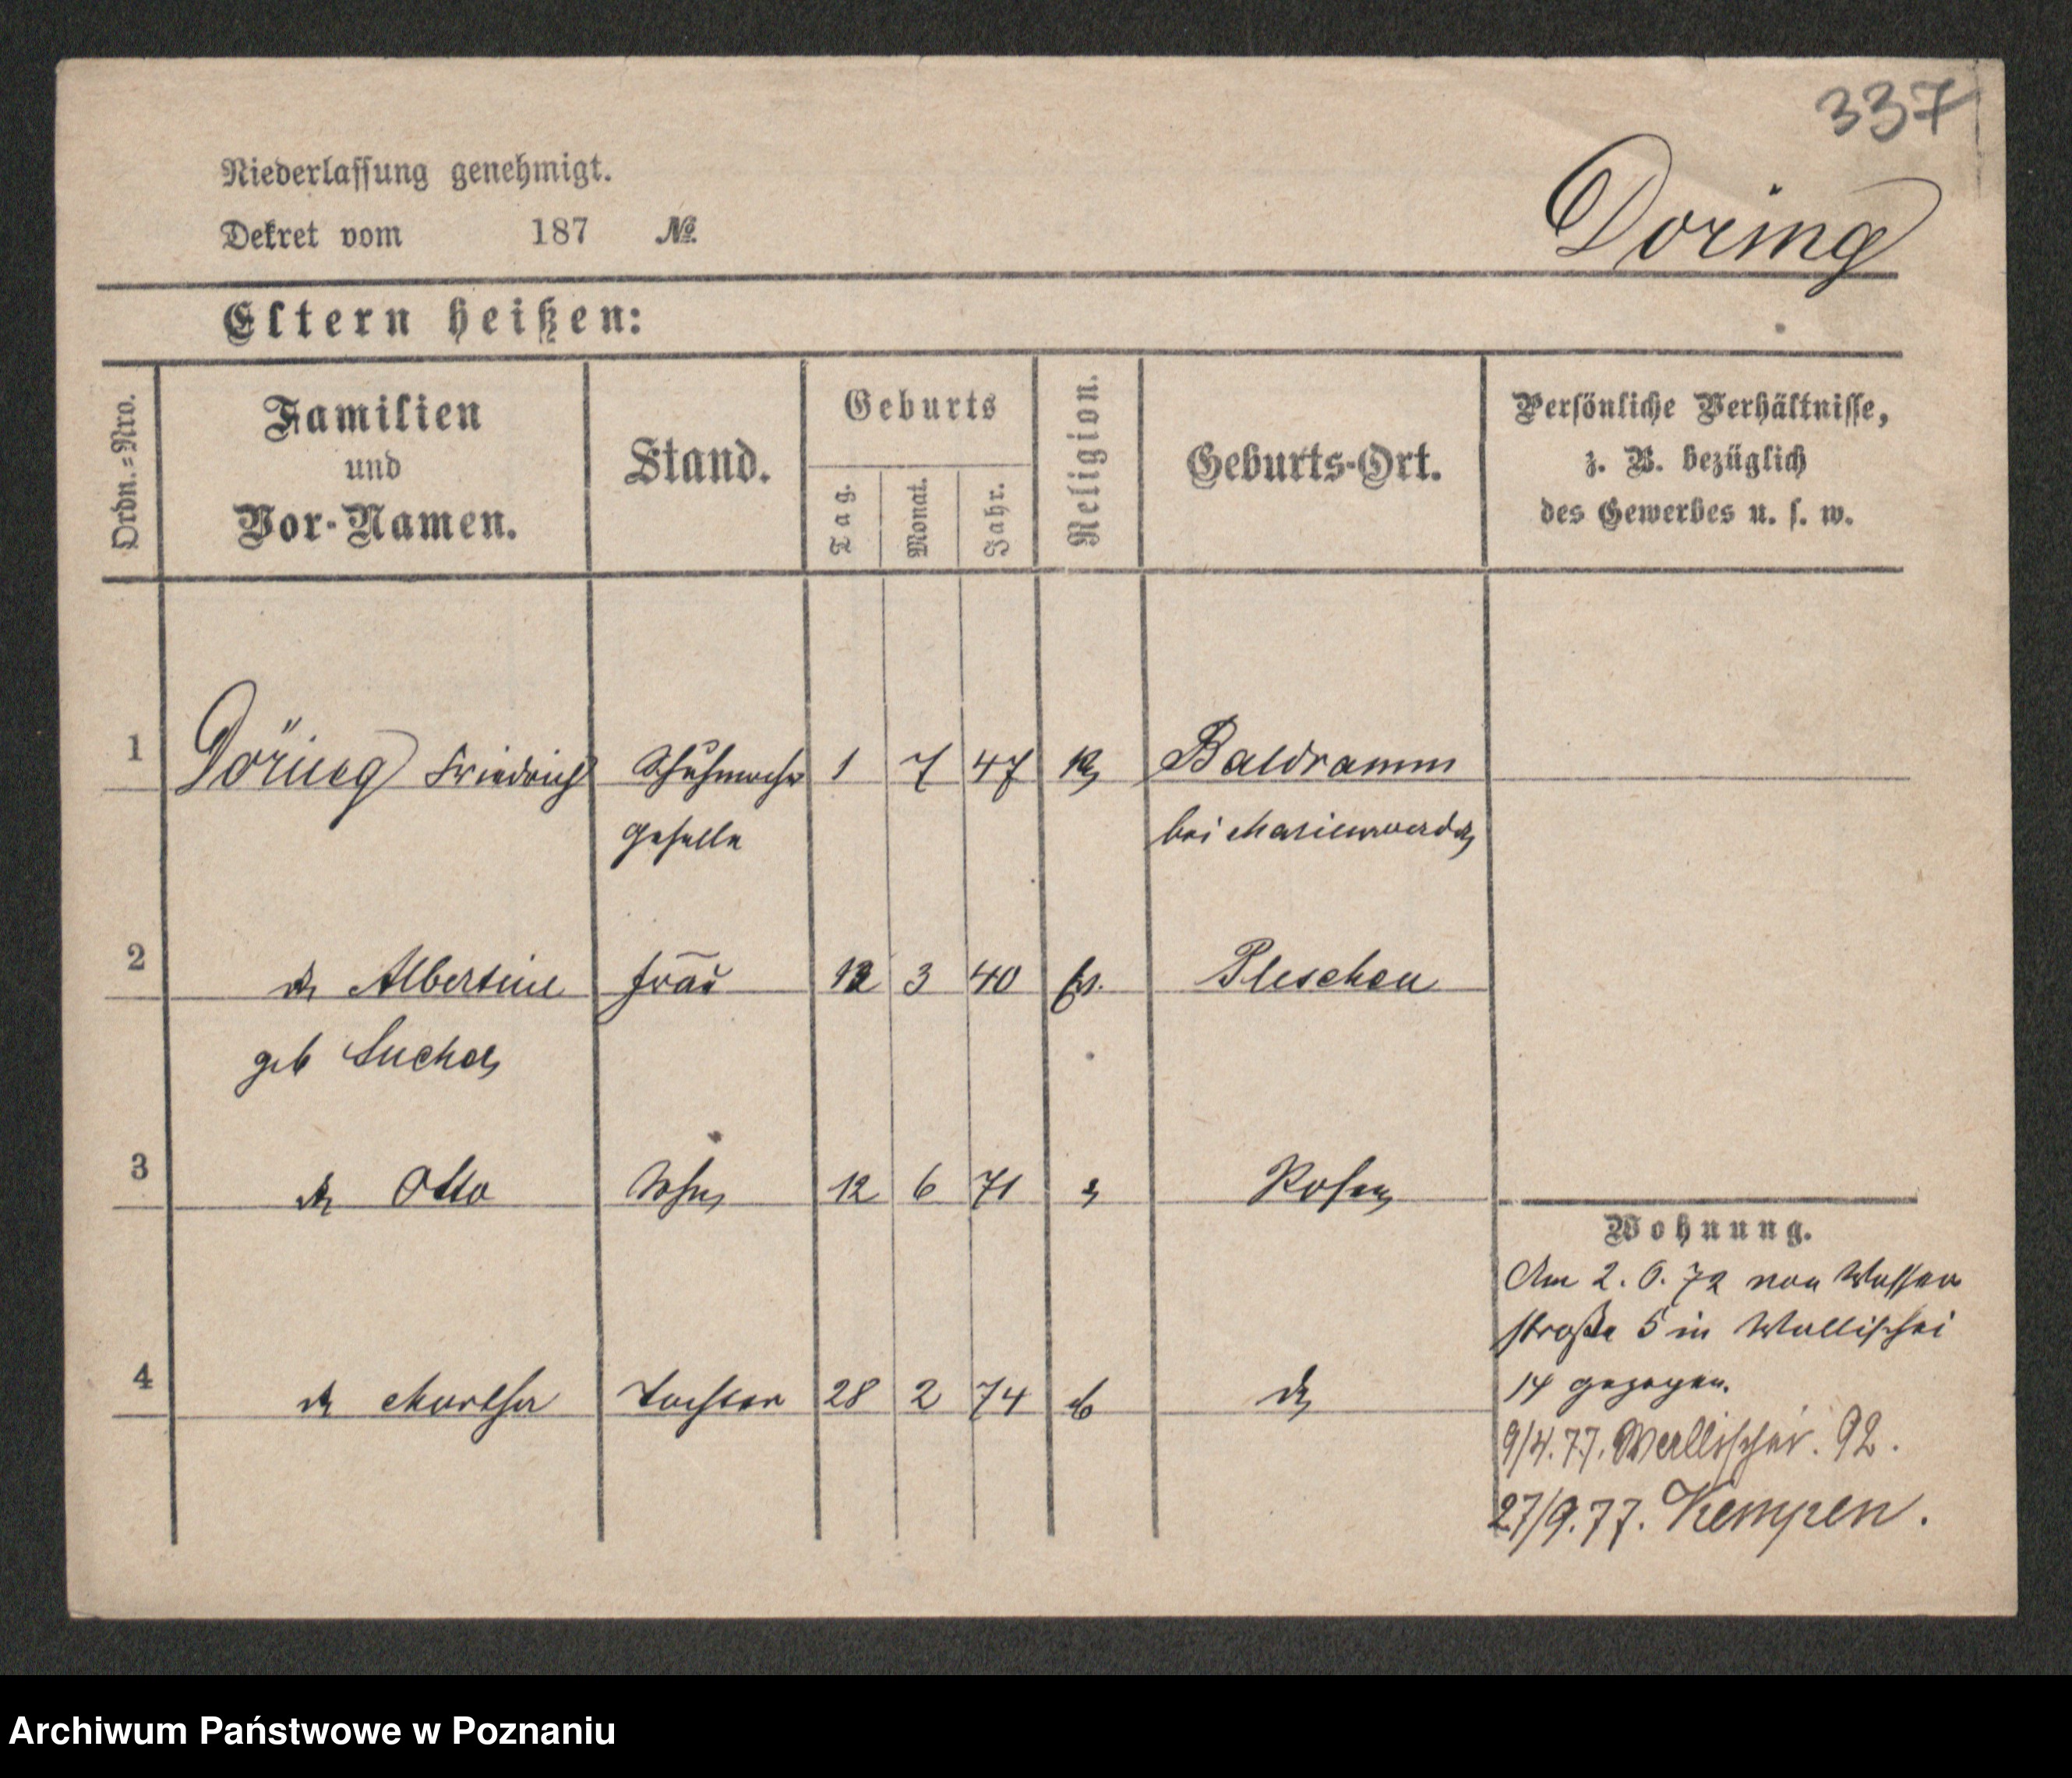 337
Niederlassung genehmigt.
Dekret vom 187 №
Doring
Eltern heißen:
Ordn.=Nro.
Familien
und
Vor-Namen.
Stand.
Geburts
Tag.
Monat.
Jahr.
Religion.
Geburts-Ort.
Persönliche Verhältnisse,
z. B. bezüglich
des Gewerbes u. s. w.
1 Döring Friedrich Schuhmacher 1 7 47 Baldramm
geselle bei Marienwerder
2 Albertine Frau 12 3 40 Pleschen
geb
3 Otto Sohn 12 6 71 Posen
4 Martha Tochter 28 2 74
Wohnung.
Am 2. 6. 72 von Wasser
straße 5 in Wallischei
14 gezogen.
9/4.77. Wallischei. 92.
27/9.77. Kempen.
Archiwum Państwowe w Poznaniu